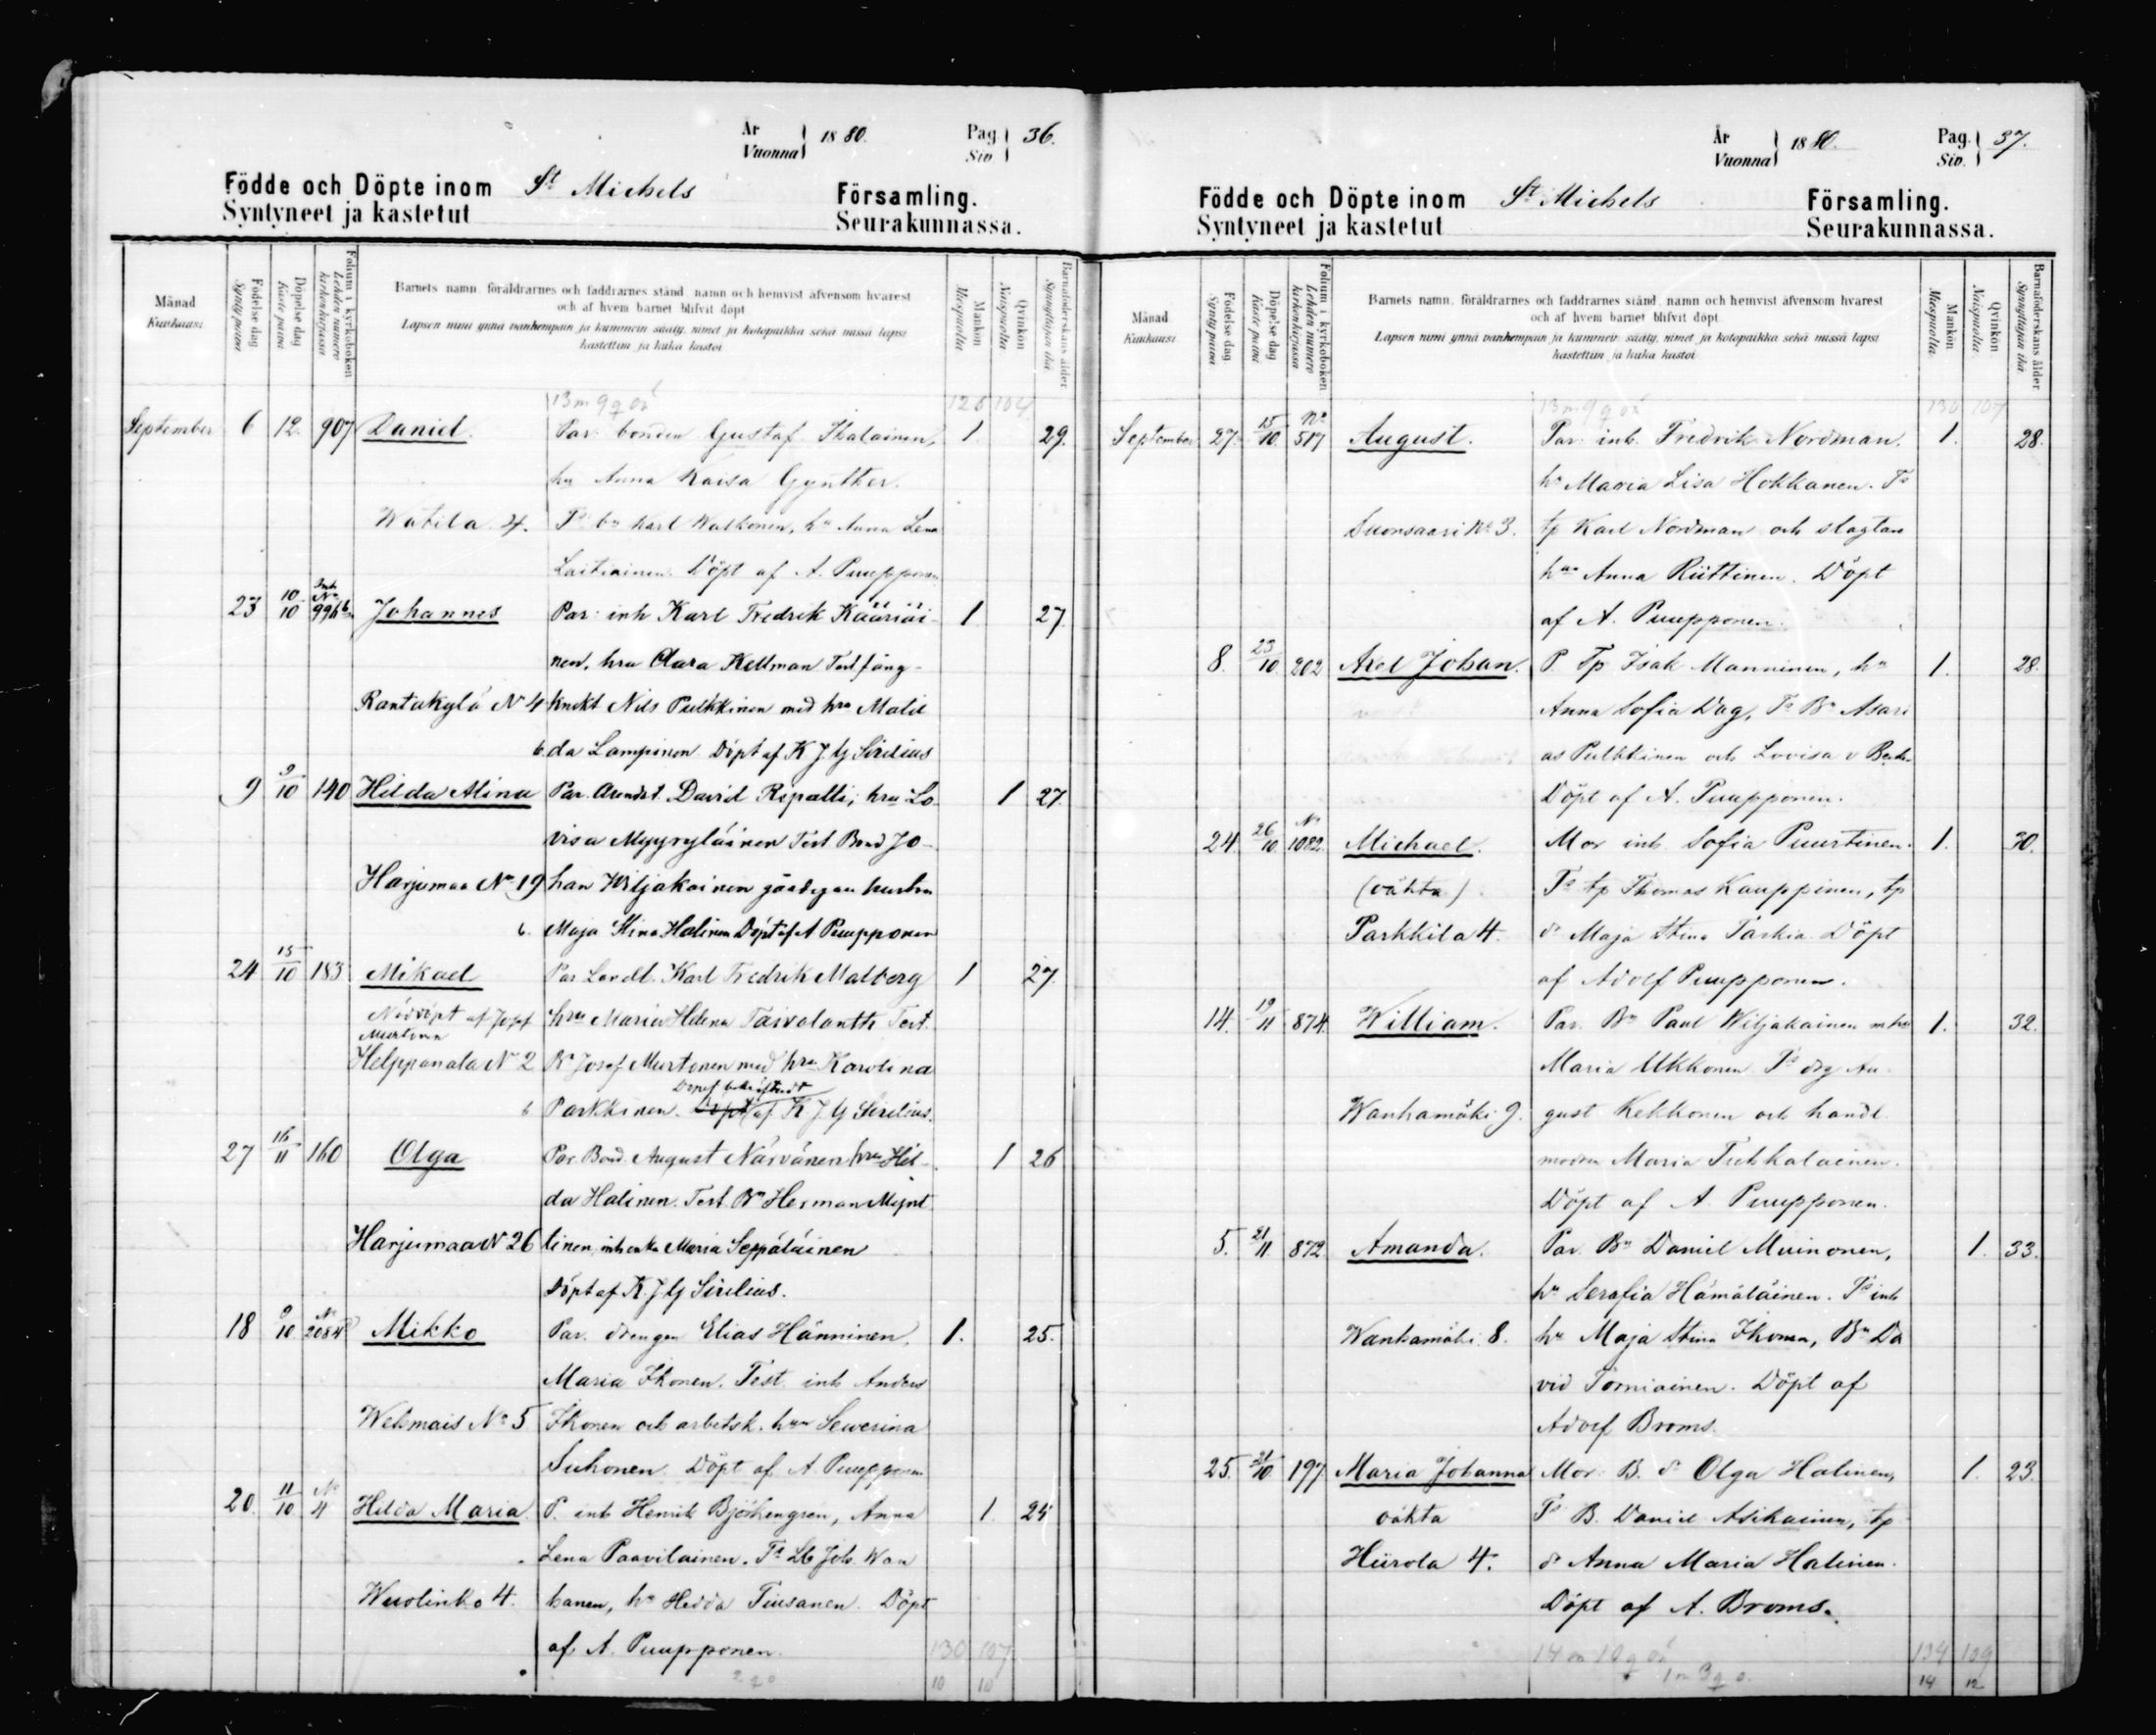 År
Vuonna
1880.
Pag.
Siv.
36.
Födde och Döpte inom St Michels Församling.
Syntyneet ja kastetut Seurakunnassa.
Månad
Kuukausi
Födelse dag
Synty päivä
Döpelse dag
Kaste päivä
Folium i kyrkoboken
Lehden numero kirkonkirjassa
Barnets namn, föräldrarnes och faddrarnes stånd, namn och hemvist äfvensom hvarest
och af hvem barnet blifvit döpt
Lapsen nimi ynnä vanhempain ja kummein sääty, nimet ja kotopaikka sekä missä lapsi
kastettiin ja kuka kastoi
Mankön
Miespuolta
Qvinkön
Naispuolta
Barnaföderskans ålder
Synnyttäjän ikä
126 104
September 6 12. 907 Daniel. Par: bonden Gustaf Ikalainen, 1. 29.
hu Anna Kaisa Gynther.
Watila 4. Ts bn Karl Walkonen, hu Anna Lena
Laitiainen. Döpt af A. Puupponen
23 10/10 996 b. Johannes Par: inh Karl Fredrik Kääriäi- 1 27
nen, hru Clara Kellman Test fång-
Rantakylä No 4 knekt Nils Pulkkinen med hru Matil
da Lampinen Döpt af K J G Sirelius
9 9/10 140 Hilda Alina Par. Arendt. David Repatti, hru Lo- 1 27
visa Myyryläinen Test Bond Jo-
Harjumaa No 19 han Wiljakainen gårdegau hustru
Maja Stina Halinen Döpt af A Puupponen
24 15/10 183 Mikael Par Landt. Karl Fredrik Malberg 1 27.
Nöddöpt af Josef hru Maria Helena Taivalantti Test.
Murtonen
Helppanala No 2 Bn Josef Murtonen med hru Karolina
Dopet bekräftadt
Parkkinen. Döpt af K J G Sirelius.
27 16/11 160 Olga Par. Bond. August Närvänen hru Hil- 1 26
da Halinen. Test. Bn Herman Mynt
Harjumaa No 26 tinen, inh enka Maria Seppäläinen
Döpt af K J G Sirelius.
18 9/10 No 2084 Mikko Par. drengen Elias Hänninen, 1. 25.
Maria Ikonen. Test. inh Anders
Wehmais No 5 Ikonen och arbetsk. hru Sewerina
Suhonen Döpt af A Puupponen
20. 11/10 No 4 Hilda Maria P. inh Henrik Björkengren, Anna 1. 25
Lena Paavilainen. Ts Lb Joh. Wan
Wuolinko 4. hanen, hu Hedda Tiusanen. Döpt
af A. Puupponen.
130 107
10 10
År
Vuonna
1880.
Pag.
Siv.
37.
Födde och Döpte inom St Michels Församling.
Syntyneet ja kastetut Seurakunnassa.
Månad
Kuukausi
Födelse dag
Synty päivä
Döpelse dag
Kaste päivä
Folium i kyrkoboken
Lehden numero kirkonkirjassa
Barnets namn, föräldrarnes och faddrarnes stånd, namn och hemvist äfvensom hvarest
och af hvem barnet blifvit döpt.
Lapsen nimi ynnä vanhempain ja kummein sääty, nimet ja kotopaikka sekä missä lapsi
kastettiin ja kuka kastoi
Mankön
Miespuolta
Qvinkön
Naispuolta
Barnaföderskans ålder
Synnyttäjän ikä
130 107
September 27. 15/10. No 517 August. Par: inh. Fredrik Nordman. 1. 28.
hu Maria Lisa Hokkanen. Ts
Suonsaari No 3. tp Karl Nordman och slagtan
hun Anna Riittinen. Döpt
af A. Puupponen.
8. 23/10. 202 Axel Johan. P. Tp Isak Manninen, hu 1. 28.
Anna Sofia Dag, Ts Bn Asari
as Pulkkinen och Lovisa v Becker
Döpt af A. Puupponen.
24. 26/10. No 1082. Michael. Mor inh. Sofia Puurtinen. 1. 30.
(oäkta) Ts tp Thomas Kauppinen, tp
Parkkila 4. dr Maja Stina Tarkia Döpt
af Adolf Puupponen.
14. 19/11 874. William. Par. Bn Paul Wiljakainen m hu 1. 32.
Maria Ukkonen. Ts drg Au
Wanhamäki 9. gust Kekkonen och handl
modern Maria Tuhkalainen.
Döpt af A. Puupponen.
5. 21/11 872 Amanda. Par. Bn Daniel Muinonen, 1. 33.
hu Serafia Hämäläinen. Ts inh
Wanhamäki 8. hu Maja Stina Ikonen, Bn Da
vid Torniainen. Döpt af
Adolf Broms.
25. 31/10. 197 Maria Johanna Mor: B. dr Olga Halinen, 1. 23.
oäkta Ts B. Daniel Asikainen, tp
Hiirola 4. dr Anna Maria Halinen.
Döpt af A. Broms.
134 109
14 12